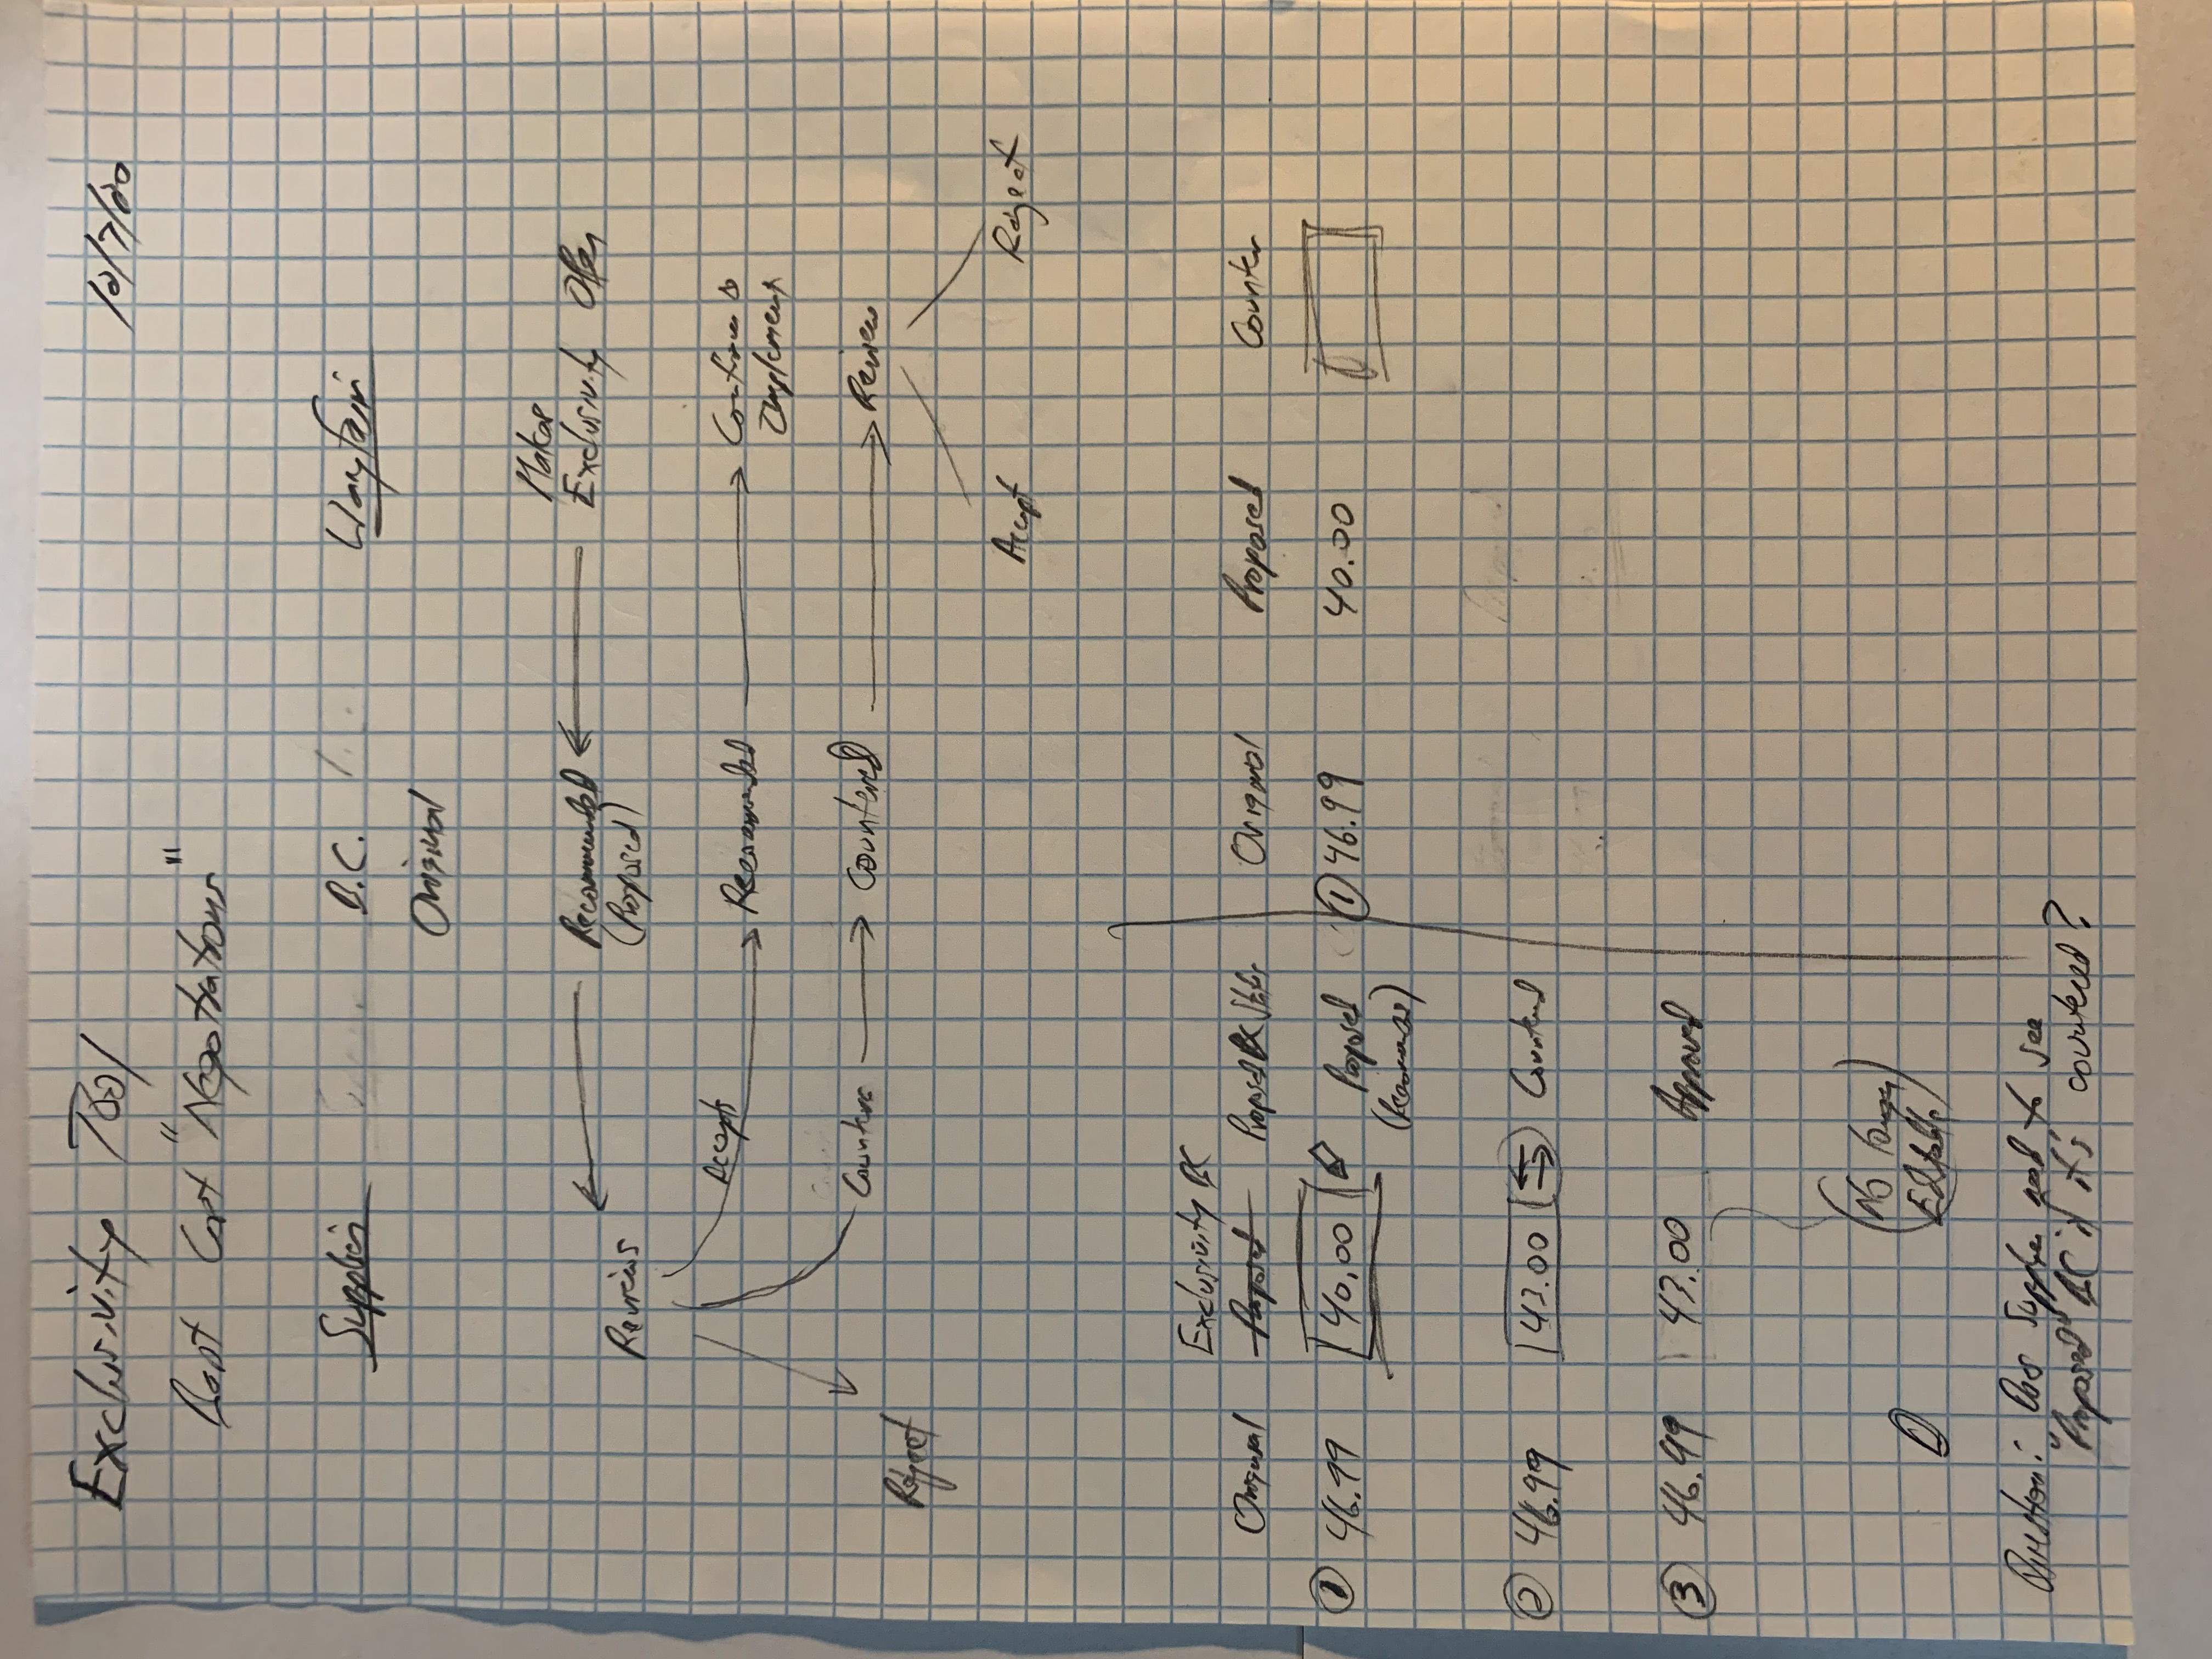 Exclusivity Tool 10/7/20
Base Cost "Negotiations"
Supplier B.C. Wayfair
Original
Makes
Reviews Recommended Exclusivity Offer
(Proposed)
Accepts Recommended Confirms &
Implements
Counters Countered Review
Reject
Accept Reject
Exclusivity BC
Original Proposed Proposed BC Original Proposed Counter
① 46.99 40.00 Proposed ① 46.99 40.00
② 46.99 43.00 Countered
③ 46.99 43.00 Approved
(No longer
Editable)
Question: Does Supplier need to see
"Proposed" BC if it's countered?